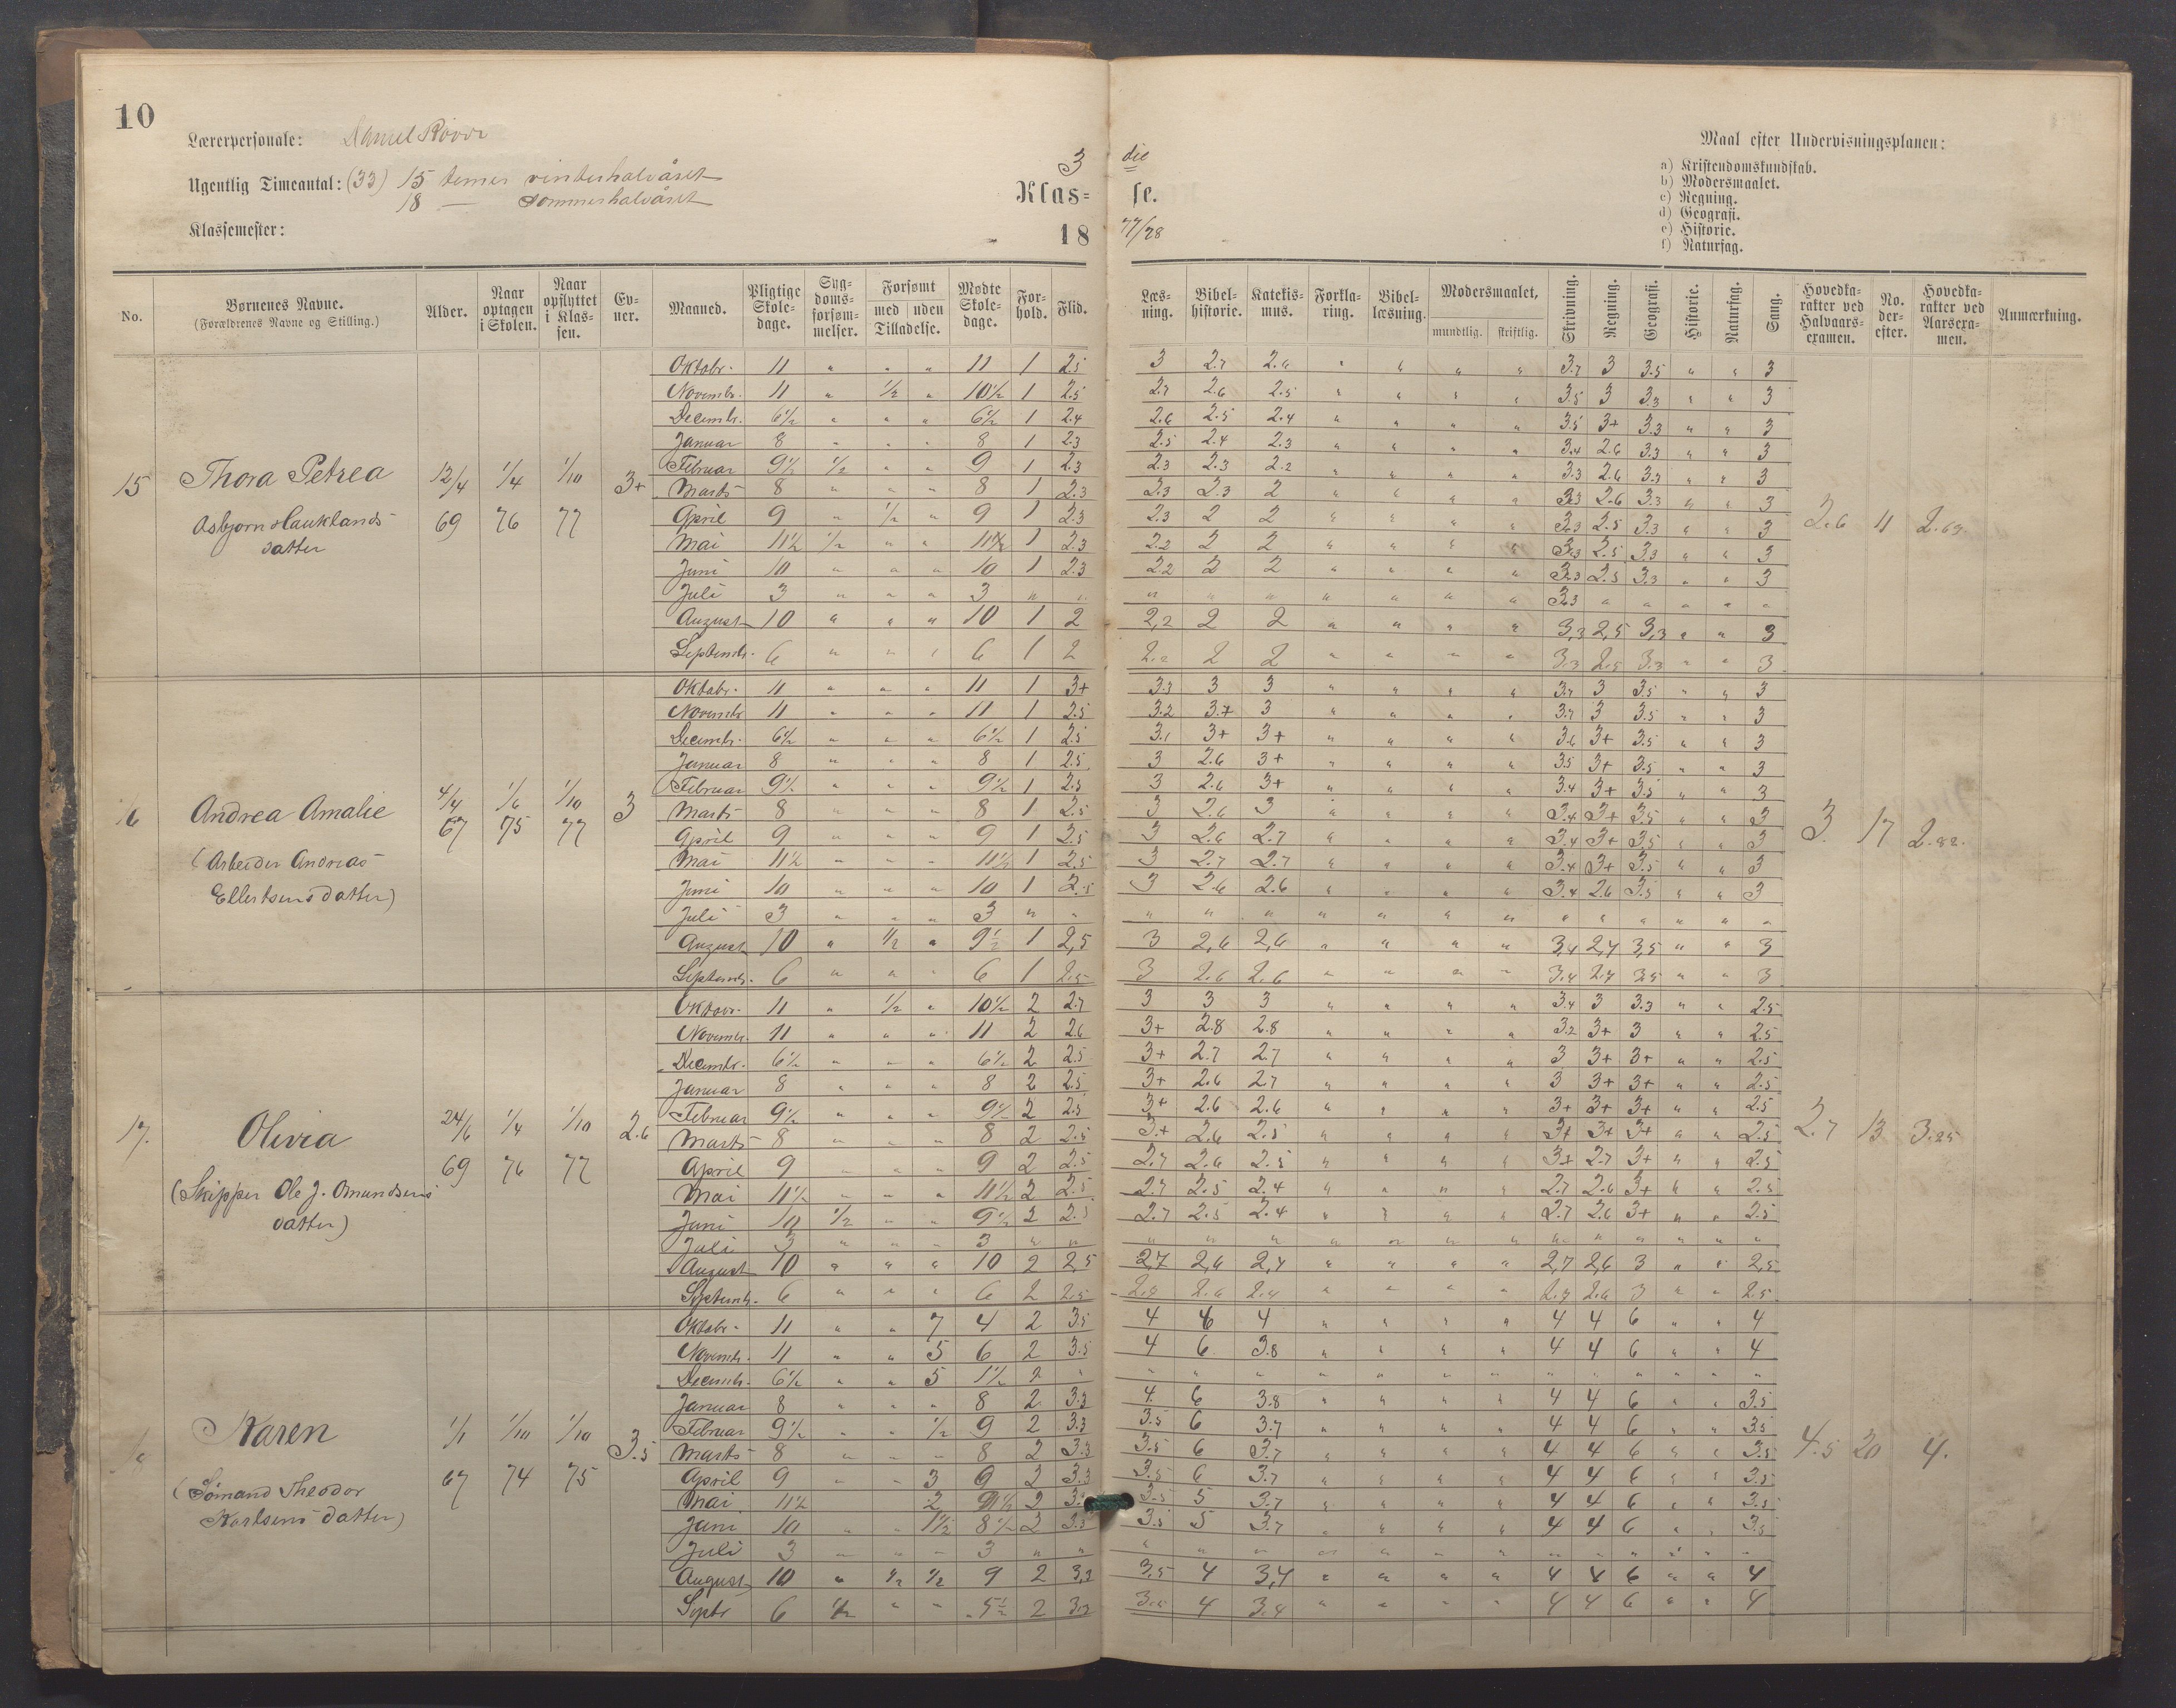 10
Lærerpersonale: Daniel
Ugentlig Timeantal: (33) 15 timer vinterhalvåret
18 — Sommerhalvåret
Klassemester:
3 die
Klas= se.
18 77/78
Maal efter Undervisningsplanen:
a) Kristendomskundskab.
b) Modersmaalet.
c) Regning.
d) Geografi.
e) Historie.
f) Naturfag.
No. Børnenes Navne. (Forældrenes Navne og Stilling.) Alder. Naar optagen i Skolen. Naar opflyttet i Klassen. Evner. Maaned. Pligtige Skoledage. Sygdomsforsømmelser. Forsømt med uden Tilladelse. Mødte Skoledage. Forhold. Flid. Læsning. Bibelhistorie. Katekismus. Forklaring. Bibellæsning. Modersmaalet, mundtlig. skriftlig. Skrivning. Regning. Geografi. Historie. Naturfag. Sang. Hovedkarakter ved Halvaarsexamen. No. derefter. Hovedkarakter ved Aarsexamen. Anmærkning.
15 Thora Petrea 12/4 69 1/4 76 1/10 77 3+ 2.6 11 2.63
Asbjørn Hauklands datter
Oktobr. 11 " " " 11 1 2.5 3 2.7 2.6 " " " " 3.7 3 3.5 " " 3
Novembr. 11 " 1/2 " 10 1/2 1 2.5 2.7 2.6 2.5 " " " " 3.5 3 3.3 " " 3
Decembr. 6 1/2 " " " 6 1/2 1 2.4 2.6 2.5 2.4 " " " " 3.5 3+ 3.3 " " 3
Januar 8 " " " 8 1 2.3 2.5 2.4 2.3 " " " " 3.4 2.6 3.3 " " 3
Februar 9 1/2 1/2 " " 9 1 2.3 2.3 2.3 2.2 " " " " 3.3 2.6 3.3 " " 3
Marts 8 " " " 8 1 2.3 2.3 2.3 2 " " " " 3.3 2.6 3.3 " " 3
April 9 " 1/2 " 9 1 2.3 2.3 2 2 " " " " 3.3 2.5 3.3 " " 3
Mai 11 1/2 1/2 " " 1 2.3 2.2 2 2 " " " " 3.3 2.5 3.3 " " 3
Juni 10 " " " 10 1 2.3 2.2 2 2 " " " " 3.3 2.5 3.3 " " 3
Juli 3 " " " 3 " " " " " " " " " 3.3 " " " " "
August 10 " " " 10 1 2 2,2 2 2 " " " " 3,3 2,5 3,3 " " 3
Septembr. 6 " " " 6 1 2 2.2 2 2 " " " " 3.3 2.5 3.3 " " 3
16 Andrea Amalie 4/4 67 1/6 75 1/10 77 3 3. 17 2.82.
(Arbeider Andreas
Ellertsens datter)
Oktobr. 11 " " " 11 1 3+ 3.3 3 3 " " " " 3.7 3 3.5 " " 3
Novembr. 11 " " " 11 1 2.5 3.2 3.+ 3 " " " " 3.7 3 3.5 " " 3
Decembr. 6 1/2 " " " 6 1/2 1 2.5 3.1 3+ 3+ " " " " 3.6 3+ 3.5 " " 3
Januar 8 " " " 8 1 2.5 3 2.6 3+ " " " " 3.5 3+ 3.5 " " 3
Februar 9 1/2 " " " 9 1/2 1 2.5 3 2.6 3+ " " " " 3.4 3+ 3.5 " " 3
Marts 8 " " " 8 1 2.5 3 2.6 3 " " " " 3.4 3+ 3.5 " " 3
April 9 " " " 9 1 2.5 3 2.6 2.7 " " " " 3.4 3+ 3.5 " " 3
Mai 11 1/2 " " " 11 1/2 1 2.5 3 2.7 2.7 " " " " 3.4 3+ 3.5 " " 3
Juni 10 " " " 10 1 2.5 3 2.6 2.6 " " " " 3.4 2.6 3.5 " " 3
Juli 3 " " " 3 " " " " " " " " " " " " " " "
August 10 " 1/2 " 9 1/2 1 2,5 3 2,6 2,6 " " " " 3,4 2,7 3,5 " " 3
Septembr. 6 " " " 6 1 2.5 3 2.6 2.6 " " " " 3.4 2.7 3.5 " " 3
17. Olivia 24/6 69 1/4 76 1/10 77 2.6 2.7 13 3.25
(Skipper Ole J. Omundsens
datter)
Oktobr. 11 " 1/2 " 10 1/2 2 2.7 3 3 3 " " " " 3.4 3 3.3 " " 2.5
Novembr. 11 " " " 11 2 2.6 3+ 2.8 2.8 " " " " 3.2 3+ 3 " " 2.5
Decembr. 6 1/2 " " " 6 1/2 2 2.5 3+ 2.7 2.7 " " " " 3 3+ 3+ " " 2.5
Januar 8 " " " 8 2 2.5 3+ 2.6 2.7 " " " " 3 3+ 3+ " " 2.5
Februar 9 1/2 " " " 9 1/2 2 2.5 3+ 2.6 2.6 " " " " 3+ 3+ 3+ " " 2.5
Marts 8 " " " 8 2 2.5 3.+ 2.6 2.5 " " " " 3+ 3+ 3+ " " 2.5
April 9 " " " 9 2 2.5 2.7 2.6 2.5 " " " " 3+ 2.7 3+ " " 2.5
Mai 11 1/2 " " " 11 1/2 2 2.5 2.7 2.5 2.4 " " " " 2.7 2.6 3+ " " 2.5
Juni 10 1/2 " " 9 1/2 2 2.5 2.7 2.5 2.4 " " " " 2.7 2.6 3+ " " 2.5
Juli 3 " " " 3 " " " " " " " " " " " " " " "
August 10 " " " 10 2 2,5 2,7 2,6 2,4 " " " " 2,7 2,6 3 " " 2,5
Septembr. 6 " " " 6 2 2.5 2.7 2.6 2.4 " " " " 2.7 2.6 3 " " 2.5
Karen 1/1 67 1/10 74 1/10 75 3.5 4.5 20 4.
(Sömand Theodor
Karlsens datter)
Oktobr. 11 " " 7 4 2 3.5 4 6 4 " " " " 4 4 6 " " 4
Novembr. 11 " " 5 6 2 3.5 4 6 3.8 " " " " 4 4 6 " " 4
Decembr. 6 1/2 " " 5 1 1/2 2 " " " " " " " " " " " " " "
Januar 8 " " " 8 2 3.3 4. 6 3.8 " " " " 4 4 6 " " 3.5
Februar 9 1/2 " " 1/2 9 2 3.3 3.5 6 3.7 " " " " 4 4 6 " " 3.5
Marts 8 " " " 8 2 3.3 3.5 6 3.7 " " " " 4 4 6 " " 3.5
April 9 " " 3 6 2 3.3 3.5 6 3.7 " " " " 4 4 6 " " 3.5
Mai 11 1/2 2 9 1/2 2 3.5 5 3.7 " " " " 4 4 6 " " 3.5
Juni 10 " " 1 1/2 8 1/2 2 3.3 3.5 5 3.7 " " " " 4 4 6 " " 3.5
Juli 3 " " " 3 " " " " " " " " " " " " " " "
August 10 " 1/2 1/2 9 2 3,3 3,5 4 3,4 " " " " 4 4 6 " " 4
Septr 6 1/2 " " 5 1/2 2 3.3 3.5 4 3.4 " " " " 4 4 6 " " 4